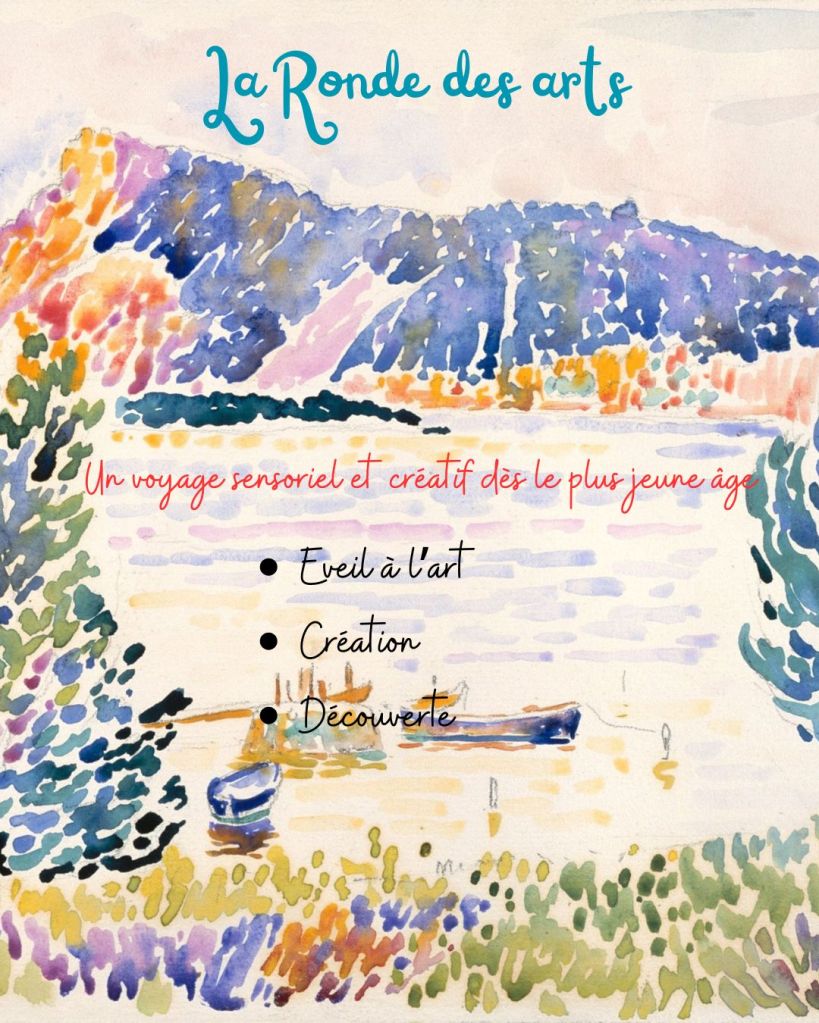 La Ronde des arts
Un voyage sensoriel et créatif dès le plus jeune âge
• Eveil à l'art
• Création
• Découverte